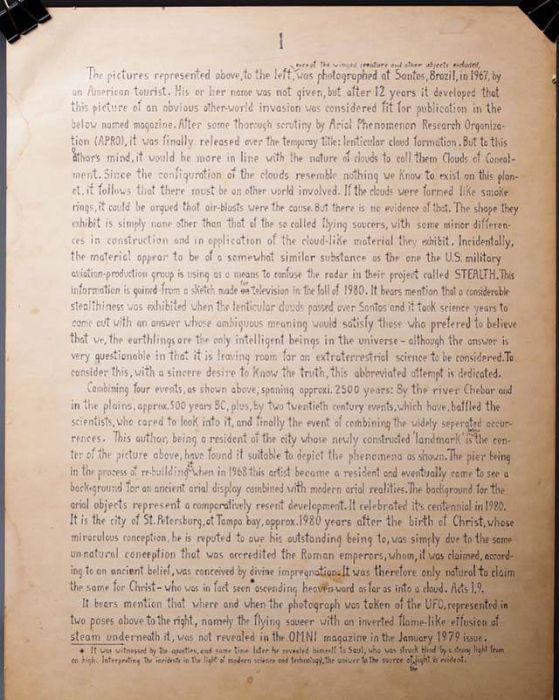 1
except the winged creature and other objects included,
The pictures represented above, to the left, was photographed at Santos, Brazil, in 1967, by
an American tourist. His or her name was not given, but after 12 years it developed that
this picture of an obvious other-world invasion was considered fit for publication in the
below named magazine. After some thorough scrutiny by Arial Phenomenon Research Organiza-
tion (APRO), it was finally released over the temporay title: lenticular cloud formation. But to this
athor's mind, it would be more in line with the nature of clouds to call them Clouds of Conceal-
ment. Since the configuration of the clouds resemble nothing we know to exist on this plan-
et, it follows that there must be an other world involved. If the clouds were formed like smoke
rings, it could be argued that air-blasts were the cause. But there is no evidence of that. The shape they
exhibit is simply none other than that of the so called flying saucers, with some minor differen-
ces in construction and in application of the cloud-like material they exhibit. Incidentally,
the material appear to be of a somewhat similar substance as the one the U.S. military
aviation-production group is using as a means to confuse the radar in their project called STEALTH. This
information is gained from a sketch made for television in the fall of 1980. It bears mention that a considerable
stealthiness was exhibited when the lenticular clouds passed over Santos and it took science years to
come out with an answer whose ambiguous meaning would satisfy those who prefered to believe
that we, the earthlings are the only intelligent beings in the universe – although the answer is
very questionable in that it is leaving room for an extraterrestrial science to be considered. To
consider this, with a sincere desire to know the truth, this abbreviated attempt is dedicated.
Combining four events, as shown above, spaning approxi. 2500 years: By the river Chebar and
in the plains, approx. 500 years BC, plus, by two twentieth century events, which have, baffled the
scientists, who cared to look into it, and finally the event of combining the widely seperated occur-
rences. This author, being a resident of the city whose newly constructed 'landmark' is the cen-
ter of the picture above, have found it suitable to depict the phenomena as shown. The pier being
in the process of re-building when in 1968 this artist became a resident and eventually came to see a
background for an ancient arial display combined with modern arial realities. The background for the
arial objects represent a comparatively resent development. It celebrated its centennial in 1980.
It is the city of St. Petersburg, at Tampa bay, approx. 1980 years after the birth of Christ, whose
miraculous conception, he is reputed to owe his outstanding being to, was simply due to the same
un-natural conception that was accredited the Roman emperors, whom, it was claimed, accord-
ing to an ancient belief, was conceived by divine impregnation. It was therefore only natural to claim
the same for Christ – who was in fact seen ascending heavenward as far as into a cloud. Acts 1,9.
It bears mention that where and when the photograph was taken of the UFO, represented in
two poses above to the right, namely the flying saucer with an inverted flame-like effusion of
steam underneath it, was not revealed in the OMNI magazine in the January 1979 issue.
It was witnessed by the apostles, and some time later he revealed himself to Saul, who was struck blind by a strong light from
on high. Interpreting the incidents in the light of modern science and technology, the answer to the source of the light is evident.